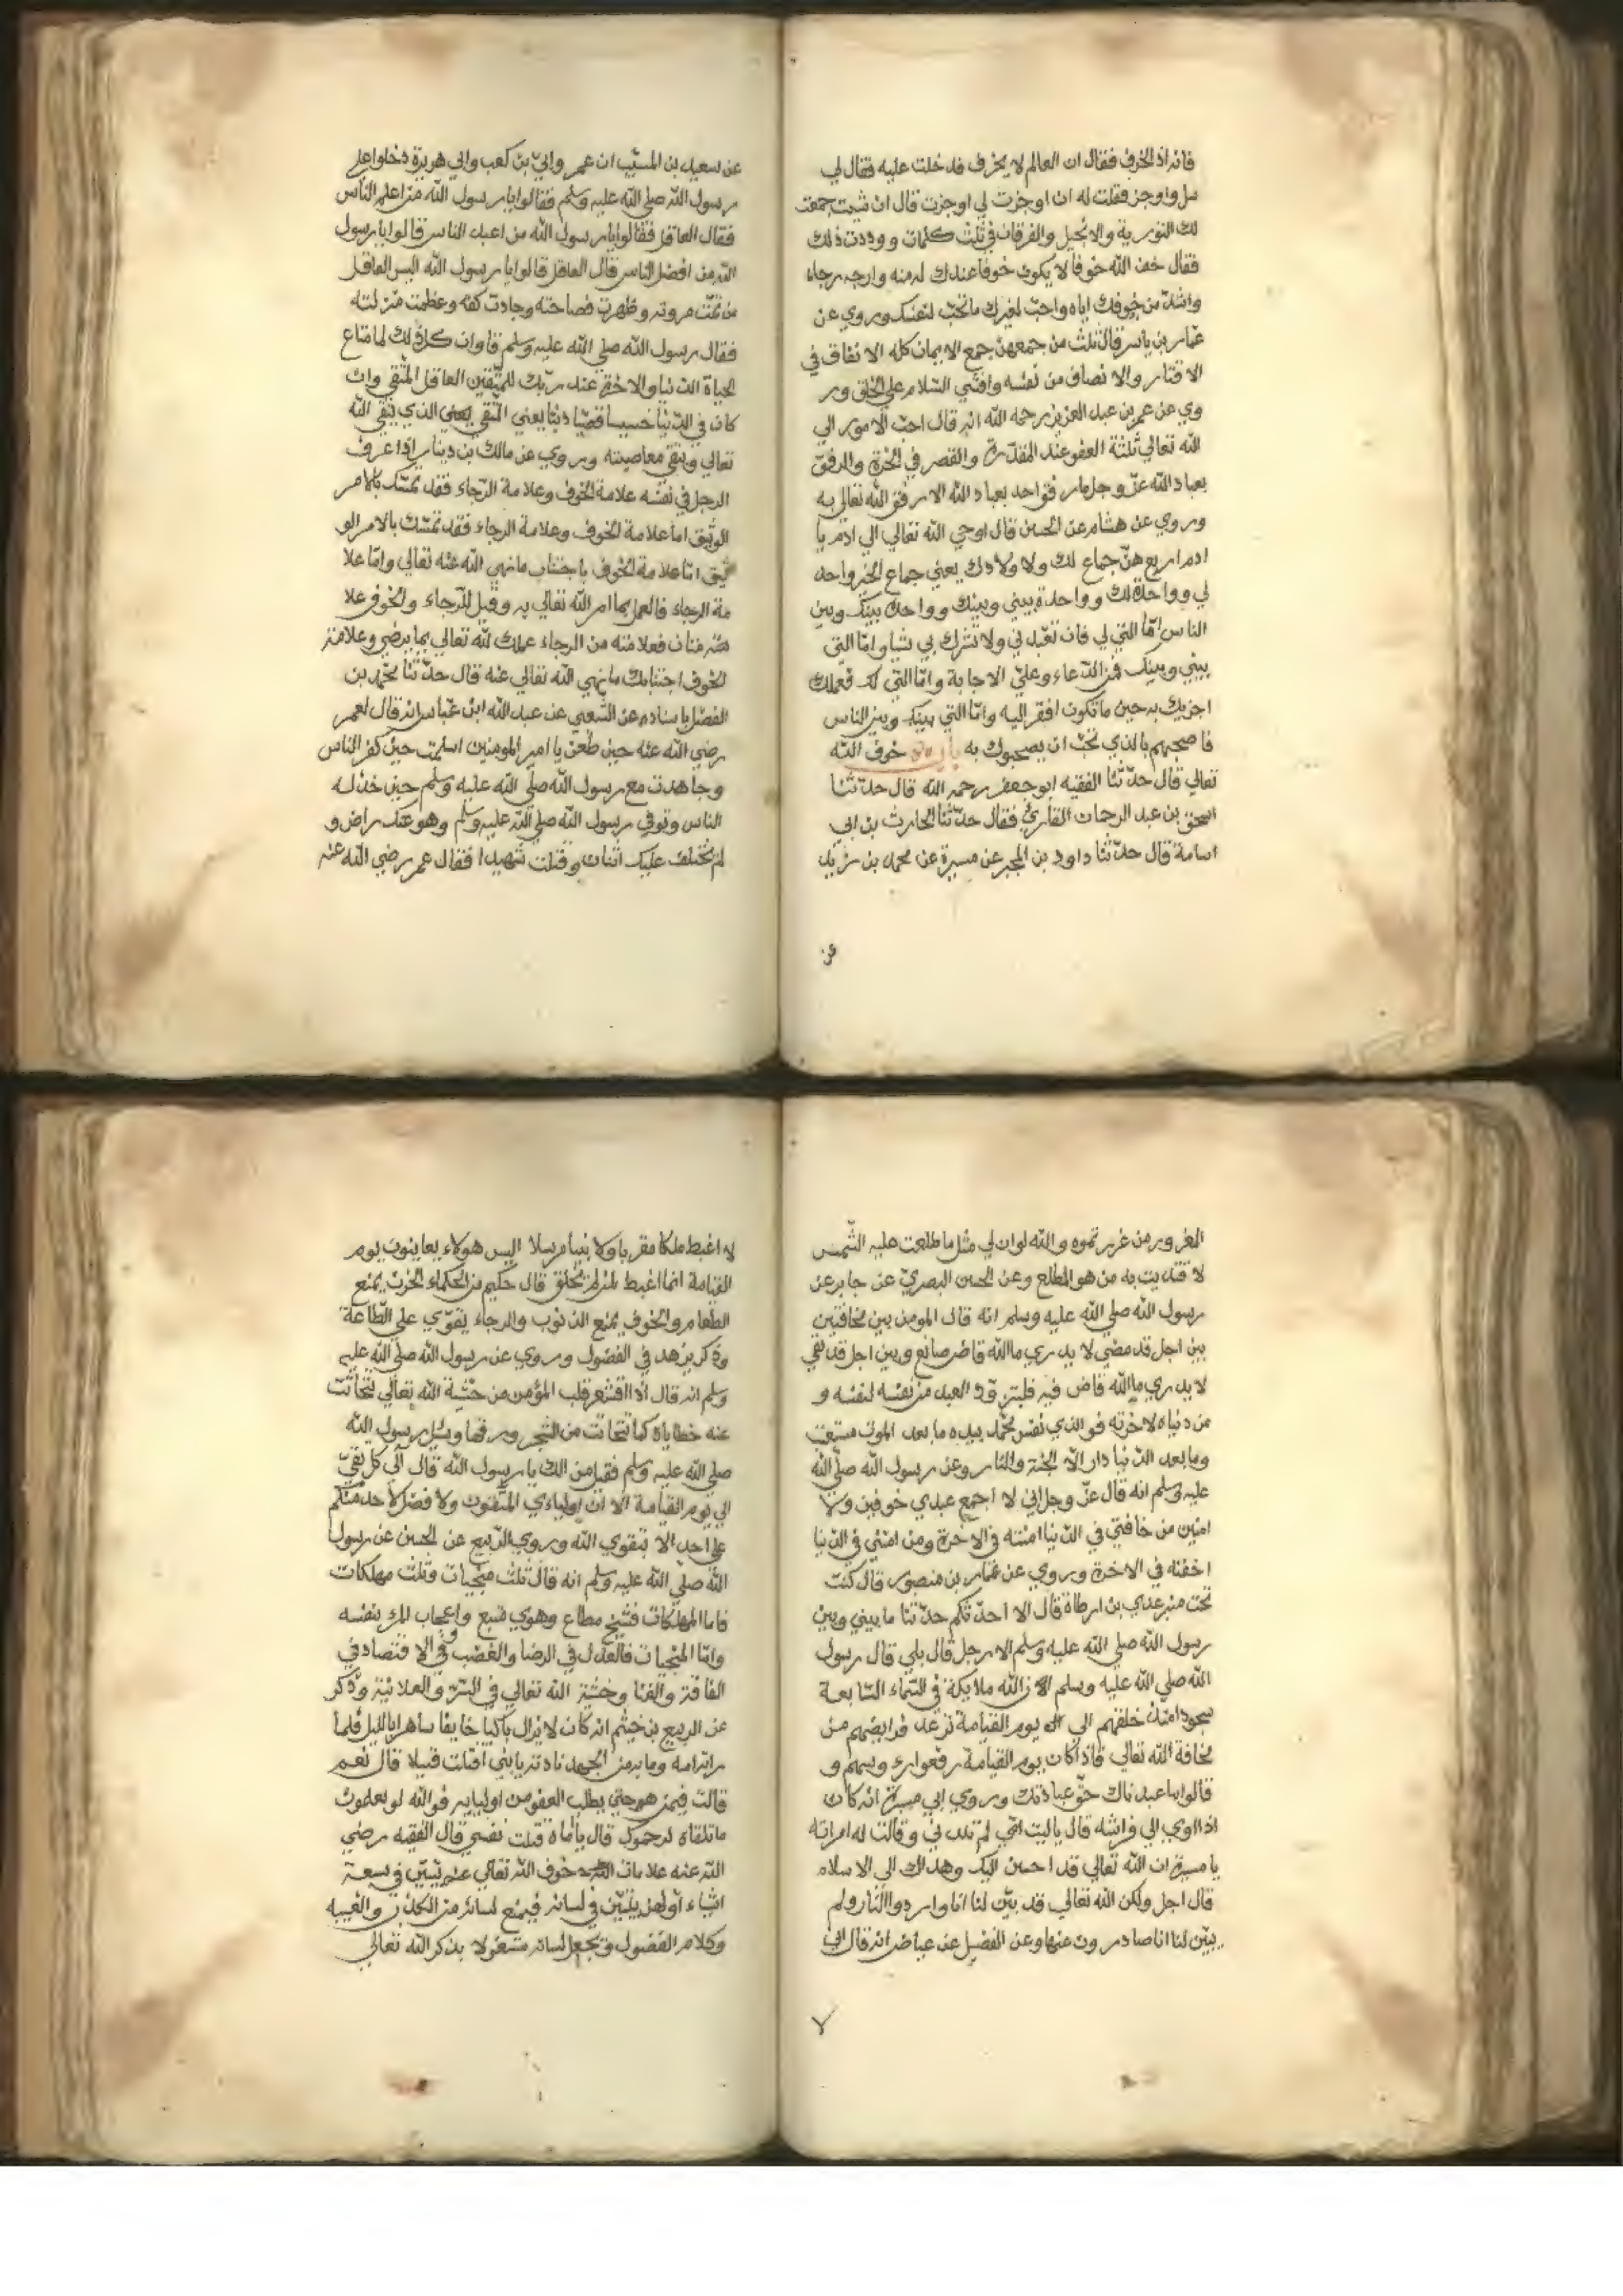 فانه اذ الخرف فقال ان العالم لا يخرف فدخلت عليه فقال لي
سل واوجز فقلت له ان اوجزت لي اوجزت قال ان شيت جمعت
لك التورية والانجيل والفرقان في ثلث كلمات ووددت ذلك
فقال خف الله خوفا لا يكون خوفا عندك له منه وارجه رجاه
واشد من خوفك اياه واحب لغيرك ما تحب لنفسك وروي عن
عمار بن ياسر قال ثلث من جمعهن جمع الايمان كله الانفاق في
الاقتار والانصاف من نفسه وافشي السلام علي الخلق ور
وي عن عمر بن عبد العزيز رحمه الله انه قال احب الامور الي
الله تعالي ثلثة العفو عند المقدرة والقصر في الحدة والرفق
بعباد الله عز وجل مار فق احد بعباد الله الا رفق الله تعالي به
وروي عن هشام عن الحسن قال اوحي الله تعالي الي ادم يا
ادم اربع هن جماع لك ولاولادك يعني جماع الخير واحد
لي وواحدة لك وواحدة بيني وبينك وواحدة بينك وبين
الناس اما التي لي فان تعبدني ولا تشرك بي شيا واما التي
بيني وبينك فمن الدعاء وعلي الاجابة واما التي لك فعملك
اجزيك به حين ما تكون افقر اليه واما التي بينك وبين الناس
فاصحبهم بالذي تحب ان يصحبوك به خوف الله
تعالي قال حدثنا الفقيه ابو جعفر رحمه الله قال حدثنا
اسحق بن عبد الرحمان القاري فقال حدثنا الحارث بن ابي
اسامة قال حدثنا داود بن المجبر عن ميسرة عن محمد بن زيد
عن
عن سعيد بن المسيب ان عمر وابي بن كعب وابي هويرة دخلوا علي
رسول الله صلي الله عليه وسلم فقالوا يا رسول الله من اعلم الناس
فقال العاقل فقالوا يا رسول الله من اعبد الناس قالوا يا رسول
الله من افضل الناس قال العاقل قالوا يا رسول الله اليس العاقل
من تمت مروته وظهرت فصاحته وجادت كفه وعظمت منزلته
فقال رسول الله صلي الله عليه وسلم وان كل ذلك لما متاع
الحياة الدنيا والاخرة عند ربك للمتقين العاقل المتقي وان
كان في الدنيا خسيسا دنيا يعني المتقي يعني الذي يتقي الله
تعالي ويتقي معاصيته وروي عن مالك بن دينار اذا عرف
الرجل في نفسه علامة الخوف وعلامة الرجاء فقد تمسك بالامر
الوثيق اما علامة الخوف وعلامة الرجاء فقد تمسك بالامر الو
ثيق اما علامة الخوف باجتناب ما نهي الله عنه تعالي واما علا
مة الرجاء فالعمل بما امر الله تعالي به وقيل للرجاء والخوف علا
متان فعلامته من الرجاء عملك لله تعالي بما يرضي وعلامة
الخوف اجتنابك ما نهي الله تعالي عنه قال حدثنا محمد بن
الفضل باسناده عن الشعبي عن عبد الله ابن عباس انه قال لعمر
رضي الله عنه حين طعن يا امير المومنين اسلمت حين كفر الناس
وجاهدت مع رسول الله صلي الله عليه وسلم حين خذله
الناس وتوفي رسول الله صلي الله عليه وسلم وهو عنك راض و
لم يختلف عليك اثنان وقتلت شهيدا فقال عمر رضي الله عنه
المغرور من غررتموه والله لو ان لي مثل ما طلعت عليه الشمس
لافتديت به من هو المطلع وعن الحسن البصري عن جابر عن
رسول الله صلي الله عليه وسلم انه قال المومن بين مخافتين
بين اجل قد مضي لا يدري ما الله قاض صانع وبين اجل قد بقي
لا يدري ما الله قاض فيه فليتزود العبد من نفسه لنفسه و
من دنياه لاخرته فو الذي نفس محمد بيده ما بعد الموت مستعتب
وما بعد الدنيا دار الا الجنة والنار وعن رسول الله صلي الله
عليه وسلم انه قال عز وجل اني لا اجمع عبدي خوفين ولا
امنين من خافني في الدنيا امنته في الاخرة ومن امنني في الدنيا
اخفته في الاخرة وروي عن عمار بن منصور قال كنت
تحت منبر عدي بن ارطاة قال الا احدثكم حدثنا ما بيني وبين
رسول الله صلي الله عليه وسلم الا رجل قال بلي قال رسول
الله صلي الله عليه وسلم ان لله ملايكة في السماء السابعة
سجودا منذ خلقهم الي يوم القيامة ترعد فرايضهم من
مخافة الله تعالي فاذا كان يوم القيامة رفعوا رءوسهم و
قالوا ما عبدناك حق عبادتك وروي ابي ميسرة انه كان
اذا اوي الي فراشه قال يا ليت امي لم تلدني وقالت له امراته
يا ميسرة ان الله تعالي قد احسن اليك وهداك الي الاسلام
قال اجل ولكن الله تعالي قد بين لنا انا واردوا النار ولم
يبين لنا انا صادرون عنها وعن الفضيل عن عياض انه قال اني
لا
لا اغبط ملكا مقربا ولا نبيا مرسلا اليس هولاء يعاينون يوم
القيامة انما اغبط لمن لم يخلق قال حكيم من الحكماء الحزن يمنع
الطعام والخوف يمنع الذنوب والرجاء يقوي علي الطاعة
وذكر يزهد في الفضول وروي عن رسول الله صلي الله عليه
وسلم انه قال اذا اقشعر قلب المؤمن من خشية الله تعالي تحاتت
عنه خطاياه كما تتحاتت من الشجر ورقها وسئل رسول الله
صلي الله عليه وسلم فقيل من الك يا رسول الله قال الي كل تقي
الي يوم القيامة الا ان اولياءي المتقون ولا فضل لاحد منكم
علي احد الا بتقوي الله وروي الربيع عن الحسن عن رسول
الله صلي الله عليه وسلم انه قال ثلث منجيات وثلث مهلكات
فاما المهلكات فشح مطاع وهوي متبع واعجاب المرء بنفسه
واما المنجيات فالعدل في الرضا والغضب وفي الاقتصاد في
الفاقة والغنا وخشية الله تعالي في السر والعلانية وذكر
عن الربيع بن خيثم انه كان لا يزال باكيا خايفا ساهرا بالليل فلما
رات امه وما به من الجهد نادته يا بني اقتلت قتيلا قال نعم
قالت فمن هو حتي يطلب العفو من اوليايه فو الله لو يعلمون
ما تلقاه لرحموك قال يا اماه قتلت نفسي قال الفقيه رضي
الله عنه علامات خوف الله تعالي عنه يتبين في سبعة
اشياء اولها يتبين في لسانه فيمنع لسانه من الكذب والغيبه
وكلام الفضول ويجعل لسانه مشغولا بذكر الله تعالي